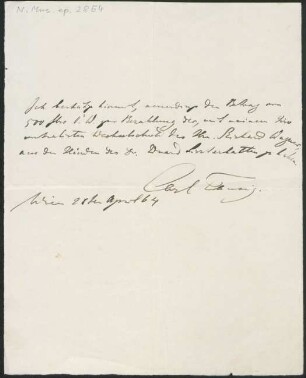 N. Mus. ep. 2864
Ich bestätige hiemit, den Betrag von
500 fl. ö. W. zur Bezahlung des, auf meinem
Wechselschein des Hn. Richard Wagner,
aus den Händen des Dr. zu haben
Carl Tausig.
Wien 28ten April 64